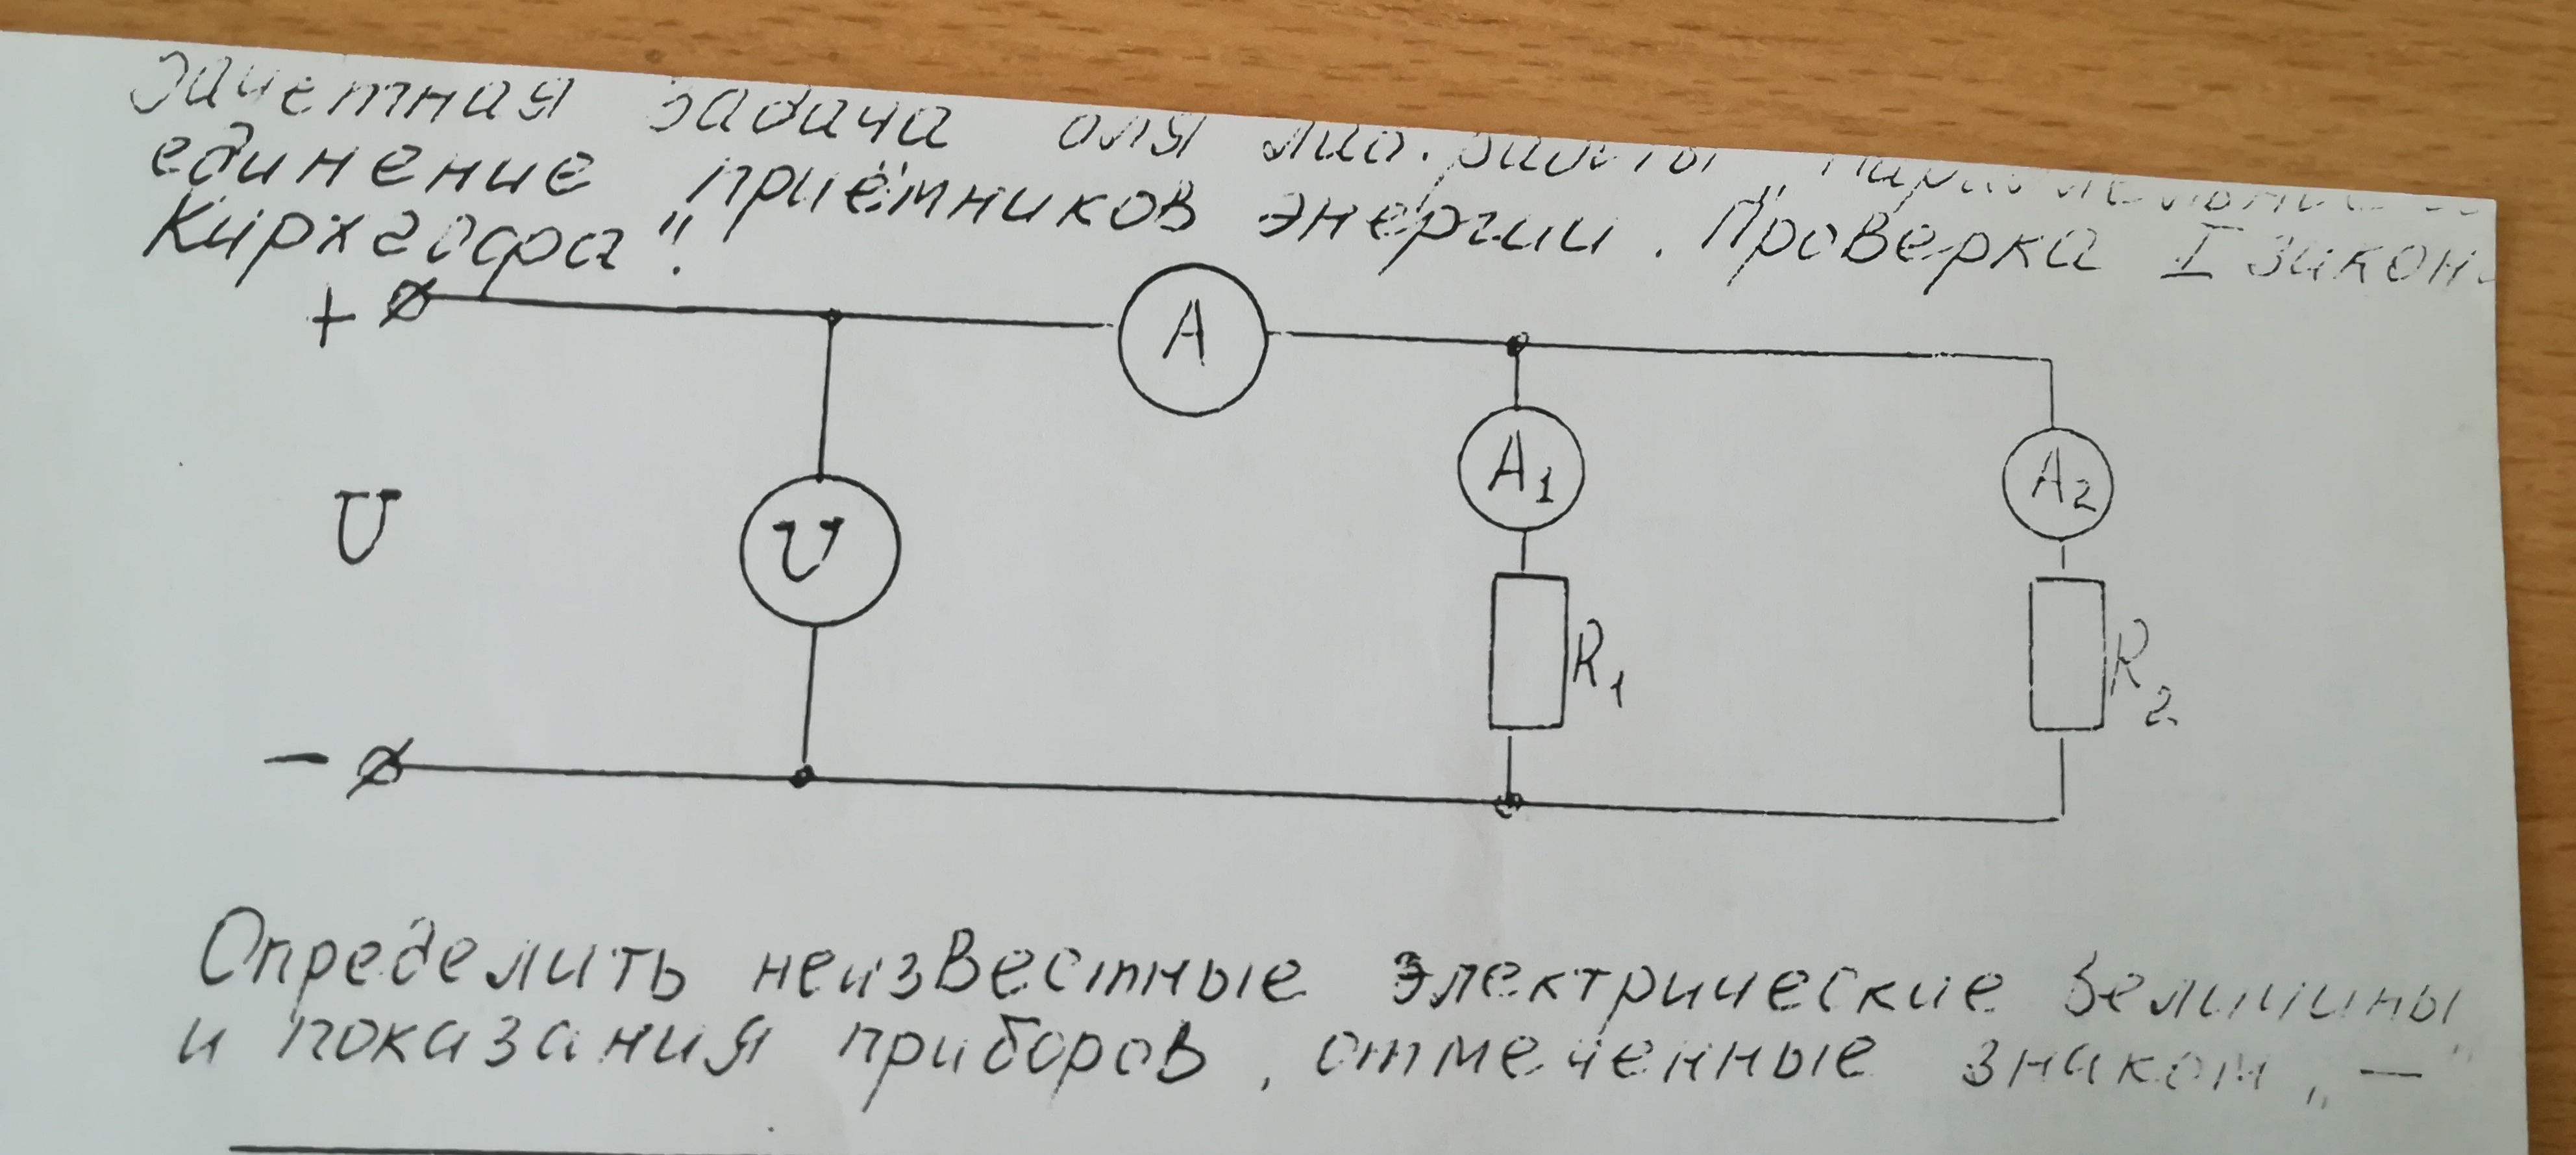 Зачетная задача для лаб. работы „Параллельное со
единение приёмников энергии. Проверка I закон
Кирхгофа".
+
A
A1
A2
U
V
R1
R2
-
Определить неизвестные электрические величины
и показания приборов, отмеченные знаком „—"